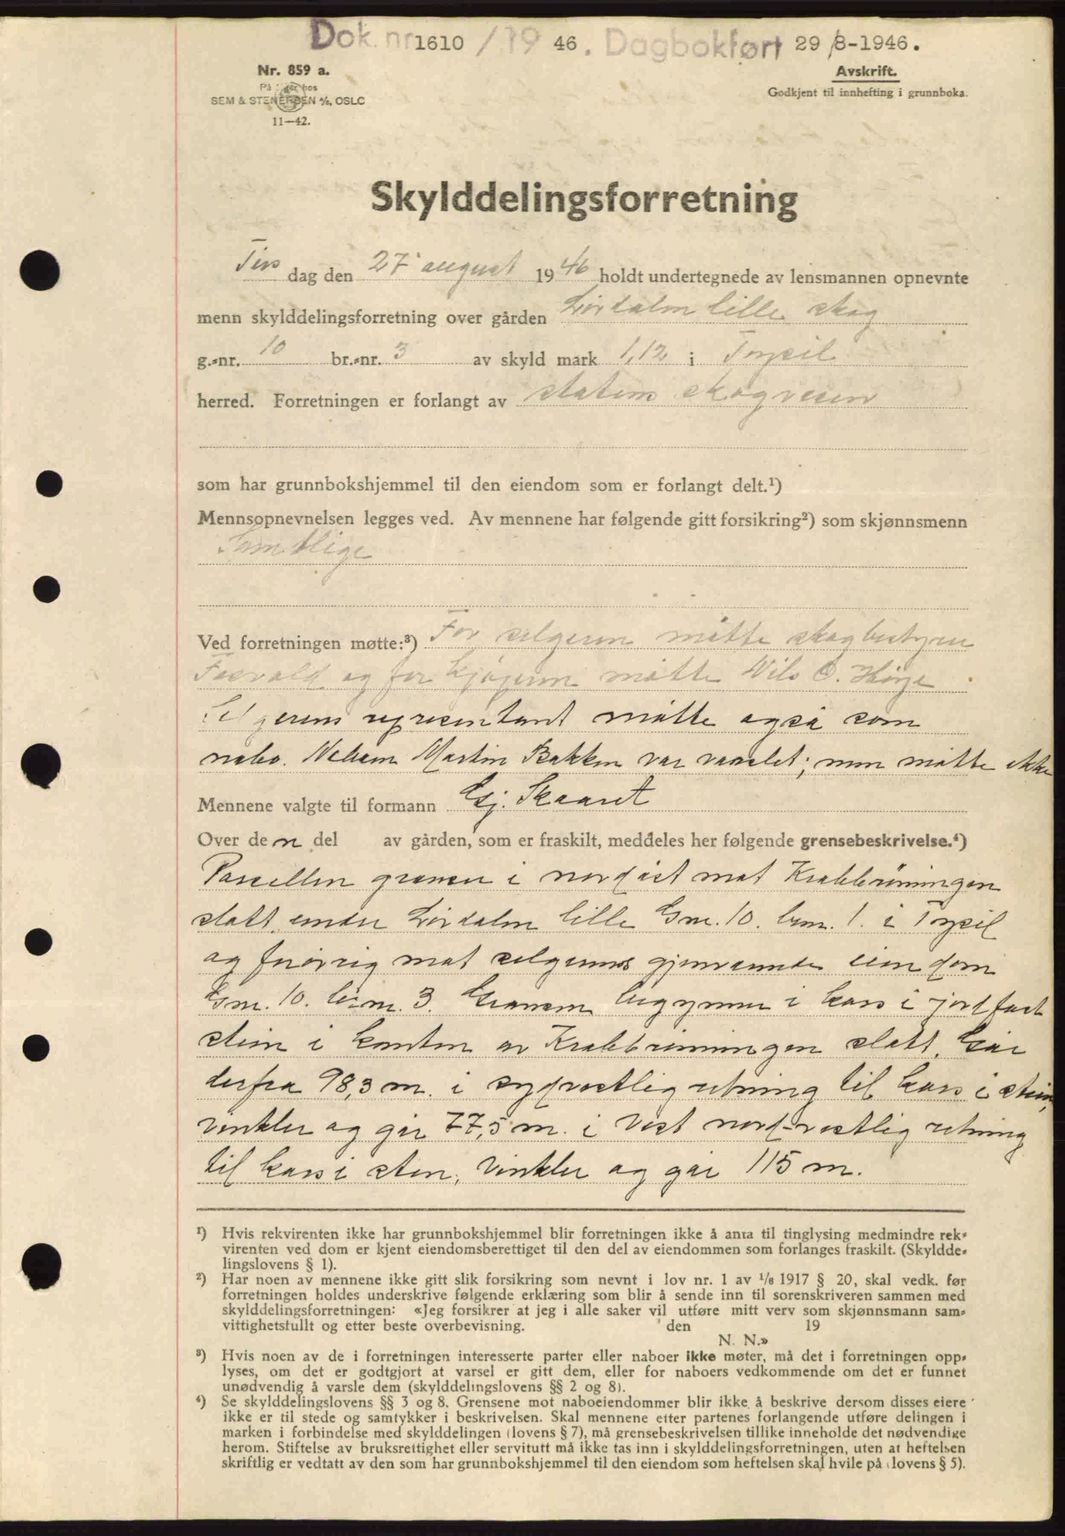 Dok. nr. 1610 / 19 46. Dagbokført 29/8-1946.
Nr. 859 a.
På lager hos
SEM & STENERSEN A/S, OSLO
11—42.
Avskrift.
Godkjent til innhefting i grunnboka.
Skylddelingsforretning
Tirs dag den 27 august 19 46 holdt undertegnede av lensmannen opnevnte
menn skylddelingsforretning over gården Lørdalen lille skog
g.-nr. 10 br.-nr. 3 av skyld mark 1,12 i Trysil
herred. Forretningen er forlangt av statens skogvesen
som har grunnbokshjemmel til den eiendom som er forlangt delt.¹)
Mennsopnevnelsen legges ved. Av mennene har følgende gitt forsikring²) som skjønnsmenn
Samtlige
Ved forretningen møtte:³) For selgeren møtte skogbestyrer
og for kjøperen møtte Nils O.
Selgerens representant møtte også som
nabo. Martin Bakken var varslet; men møtte ikke
Mennene valgte til formann Skaaret
Over den del av gården, som er fraskilt, meddeles her følgende grensebeskrivelse.⁴)
Parsellen grenser i nordøst mot Krabbrøningen
slått under Lørdalen lille Gnr. 10. brnr. 1. i Trysil
og forøvrig mot selgerens gjenværende eiendom
Gnr. 10. brnr. 3. Grensen begynner i kors i jordfast
stein i kanten av Krabbrøningen slått. Går
derfra 98,3 m. i sydvestlig retning til kors i stein,
vinkler og går 77,5 m. i vest nord-vestlig retning
til kors i sten, vinkler og går 115 m.
¹) Hvis rekvirenten ikke har grunnbokshjemmel blir forretningen ikke å anta til tinglysing medmindre rek-
virenten ved dom er kjent eiendomsberettiget til den del av eiendommen som forlanges fraskilt. (Skyldde-
lingslovens § 1).
²) Har noen av mennene ikke gitt slik forsikring som nevnt i lov nr. 1 av 1/6 1917 § 20, skal vedk. før
forretningen holdes underskrive følgende erklæring som blir å sende inn til sorenskriveren sammen med
skylddelingsforretningen: «Jeg forsikrer at jeg i alle saker vil utføre mitt verv som skjønnsmann sam-
vittighetsfullt og etter beste overbevisning. den 19
N. N.»
³) Hvis noen av de i forretningen interesserte parter eller naboer ikke møter, må det i forretningen opp-
lyses, om det er godtgjort at varsel er gitt dem, eller for naboers vedkommende om det er funnet
unødvendig å varsle dem (skylddelingslovens §§ 2 og 8).
⁴) Se skylddelingslovens §§ 3 og 8. Grensene mot naboeiendommer blir ikke å beskrive dersom disses eiere
ikke er til stede og samtykker i beskrivelsen. Skal mennene etter partenes forlangende utføre delingen i
marken i forbindelse med skylddelingen (lovens § 7), må grensebeskrivelsen tillike inneholde det nødvendige
herom. Stiftelse av bruksrettighet eller servitutt må ikke tas inn i skylddelingsforretningen, uten at heftelsen
skriftlig er vedtatt av den som har grunnbokshjemmel til den eiendom som heftelsen skal hvile på (lovens § 5).